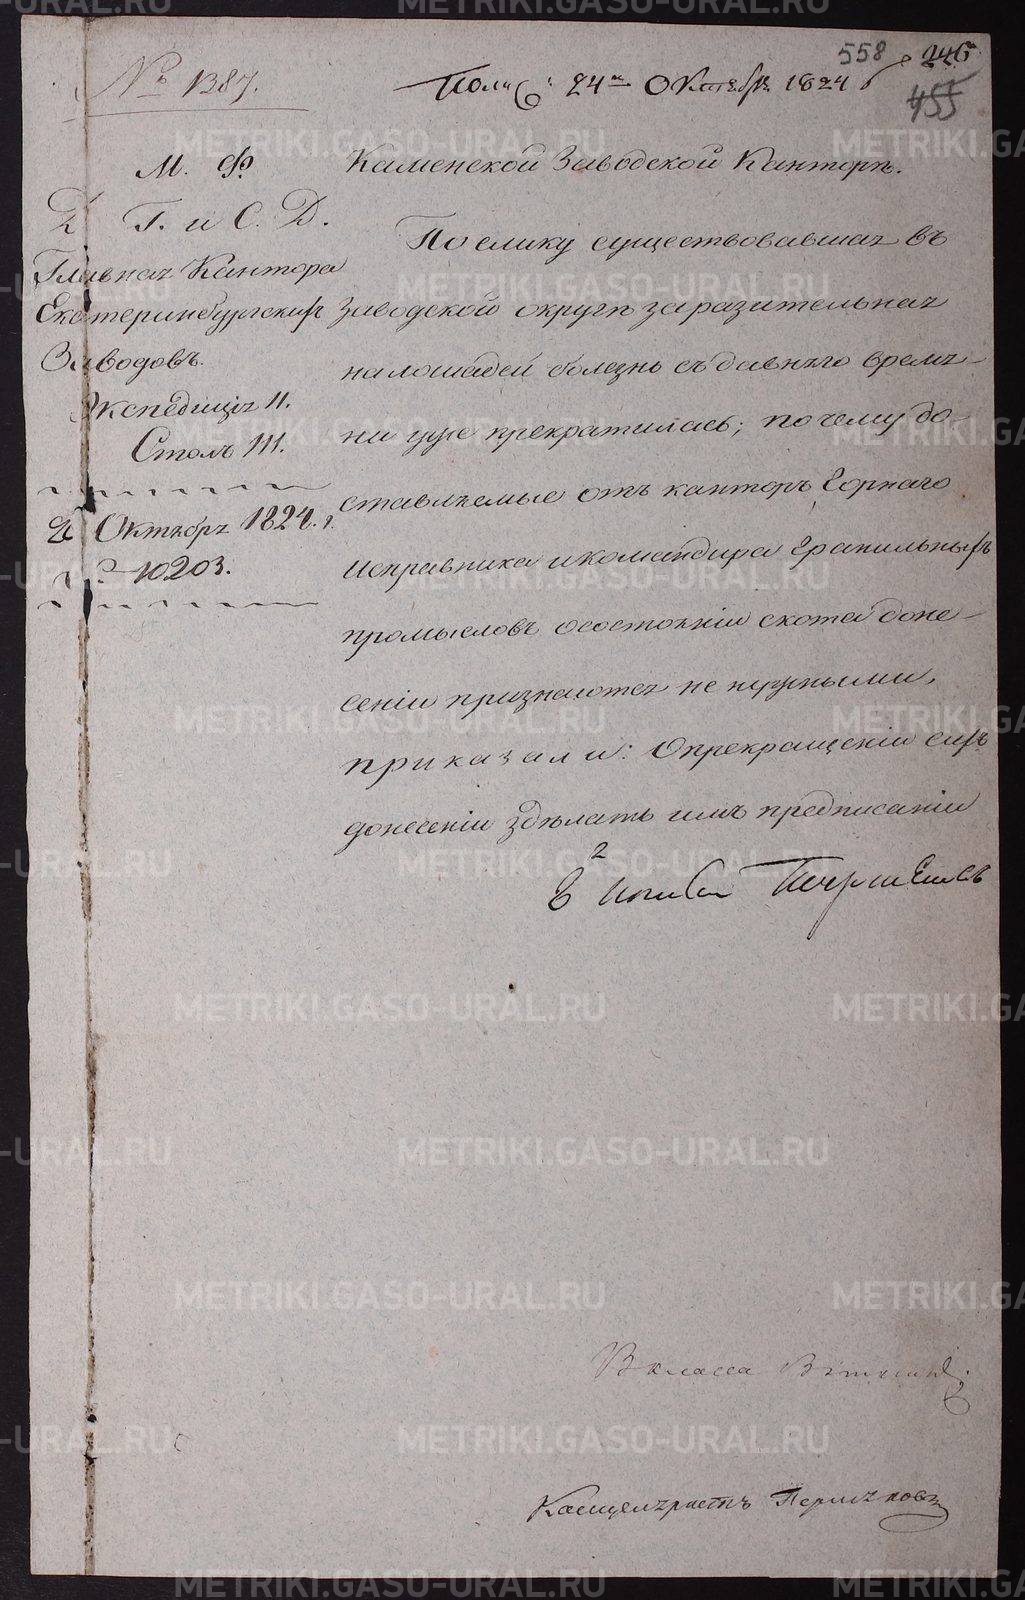 558 246
455
№ 1387.
Полу: 24го Октября 1824
М. Ф.
Д. Г. и С. Д.
Главная Кантора
Екатеринбургскихъ
Заводовъ.
Экспедиція II.
Столъ III.
22 Октября 1824. г.
№ 10203.
Каменской Заводской Канторѣ.
Поелику существовавшая въ
заводской округѣ заразительная
налошадей болезнь съ давняго време-
ни уже прекратилась; почему до-
ставляемые отъ канторъ, Горнаго
Исправника икомандира Гранильныхъ
промысловъ осостояніи скота доне-
сеніи признаются не нужными,
приказали: Опрекращеніи сихъ
донесеніи здѣлать имъ предписаніи
класса
Канцеляристъ Пермяковъ
METRIKI.GASO-URAL.RU